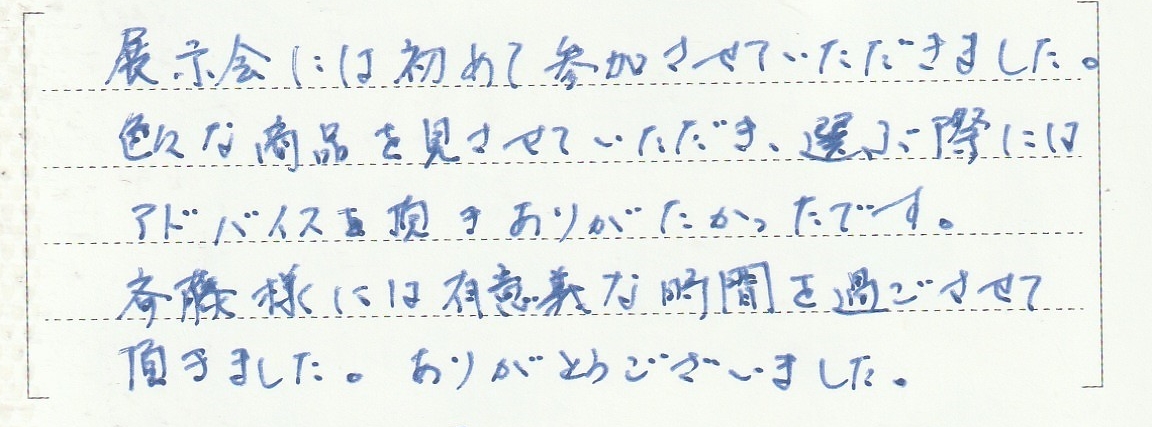 展示会には初めて参加させていただきました。
色々な商品を見させていただき、選ぶ際には
アドバイスを頂きありがたかったです。
斉藤様には有意義な時間を過ごさせて
頂きました。ありがとうございました。